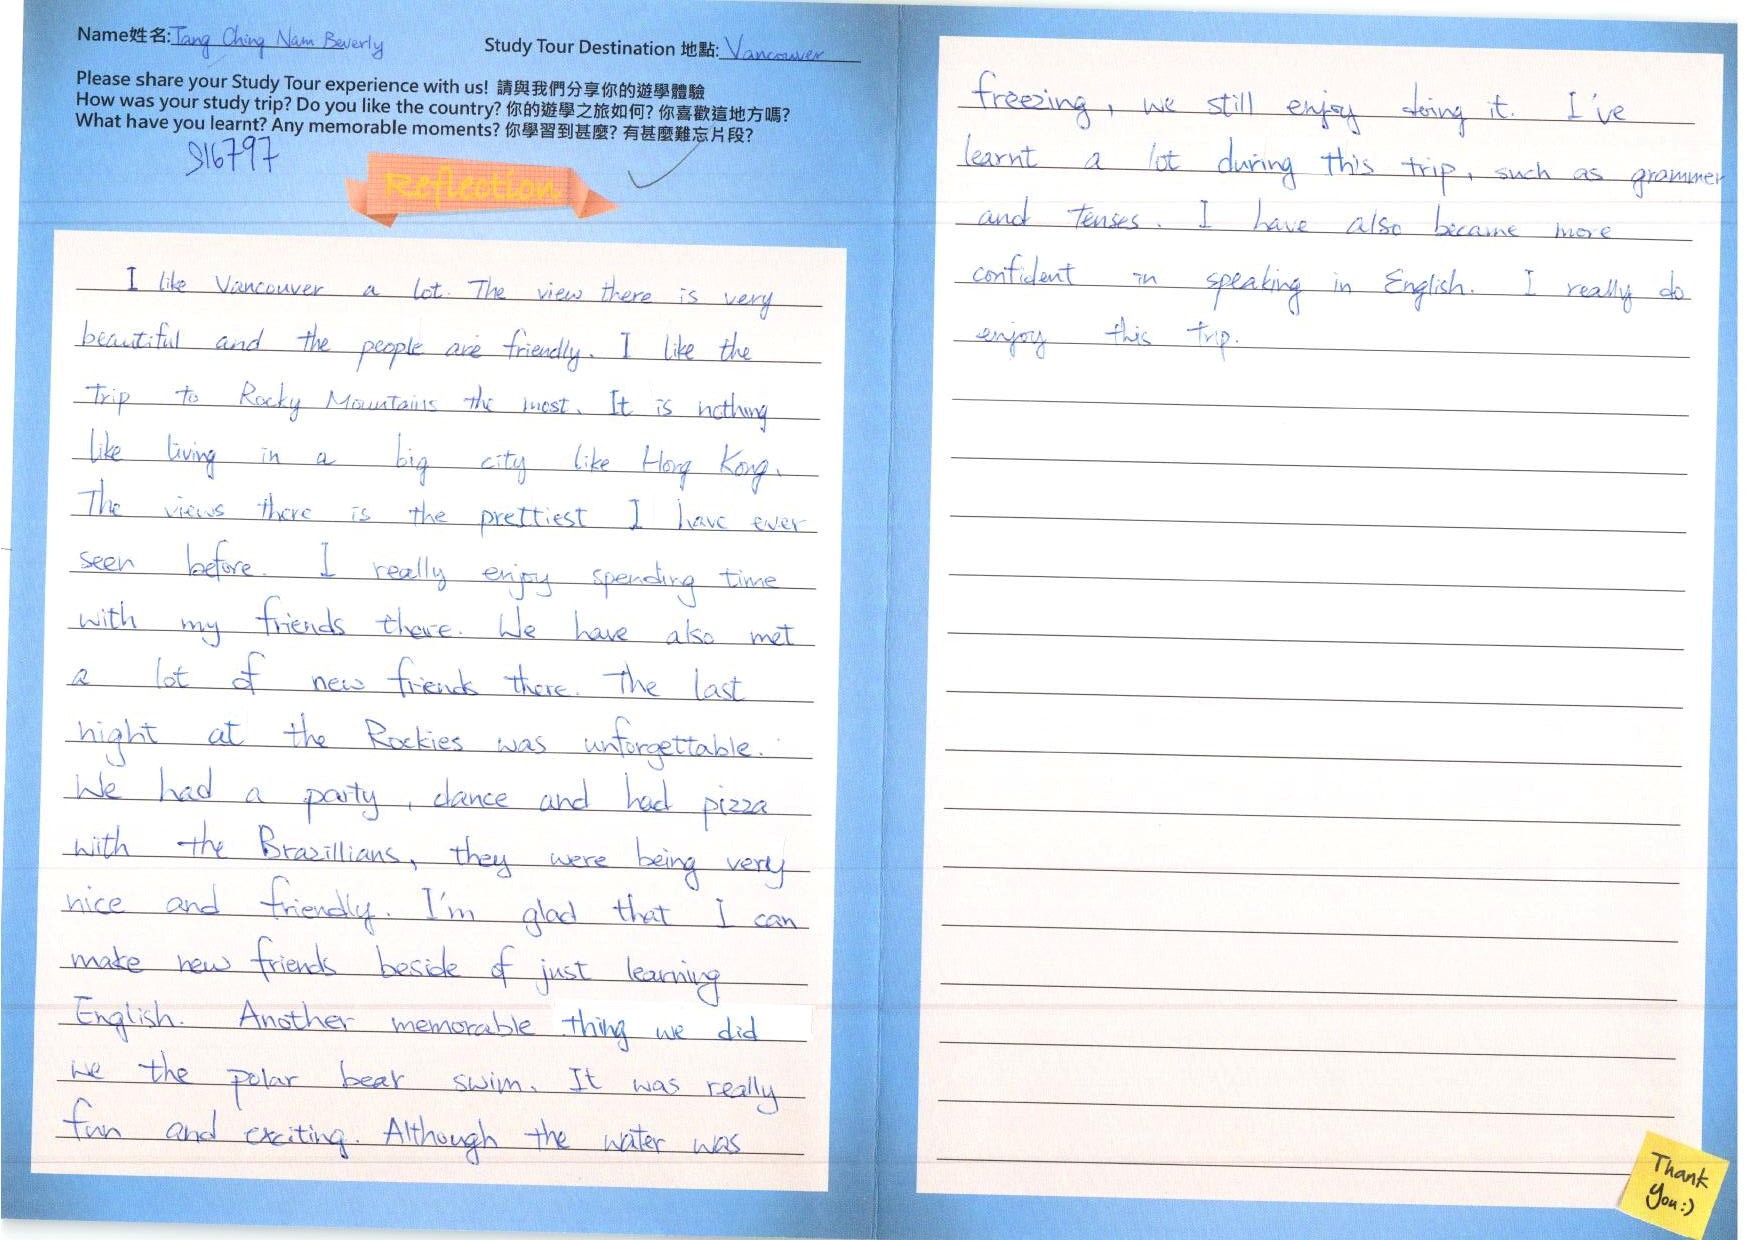 Name姓名: Tang Ching Nam Beverly
Study Tour Destination 地點: Vancouver
Please share your Study Tour experience with us! 請與我們分享你的遊學體驗
How was your study trip? Do you like the country? 你的遊學之旅如何? 你喜歡這地方嗎?
What have you learnt? Any memorable moments? 你學習到甚麼? 有甚麼難忘片段?
S16797
Reflection
I like Vancouver a lot. The view there is very
beautiful and the people are friendly. I like the
trip to Rocky Mountains the most. It is nothing
like living in a big city like Hong Kong.
The views there is the prettiest I have ever
seen before. I really enjoy spending time
with my friends there. We have also met
a lot of new friends there. The last
night at the Rockies was unforgettable.
We had a party, dance and had pizza
with the Brazillians, they were being very
nice and friendly. I'm glad that I can
make new friends beside of just learning
English. Another memorable thing we did
we the polar bear swim. It was really
fun and exciting. Although the water was
freezing, we still enjoy doing it. I've
learnt a lot during this trip, such as grammer
and tenses. I have also became more
confident in speaking in English. I really do
enjoy this trip.
Thank
you:)